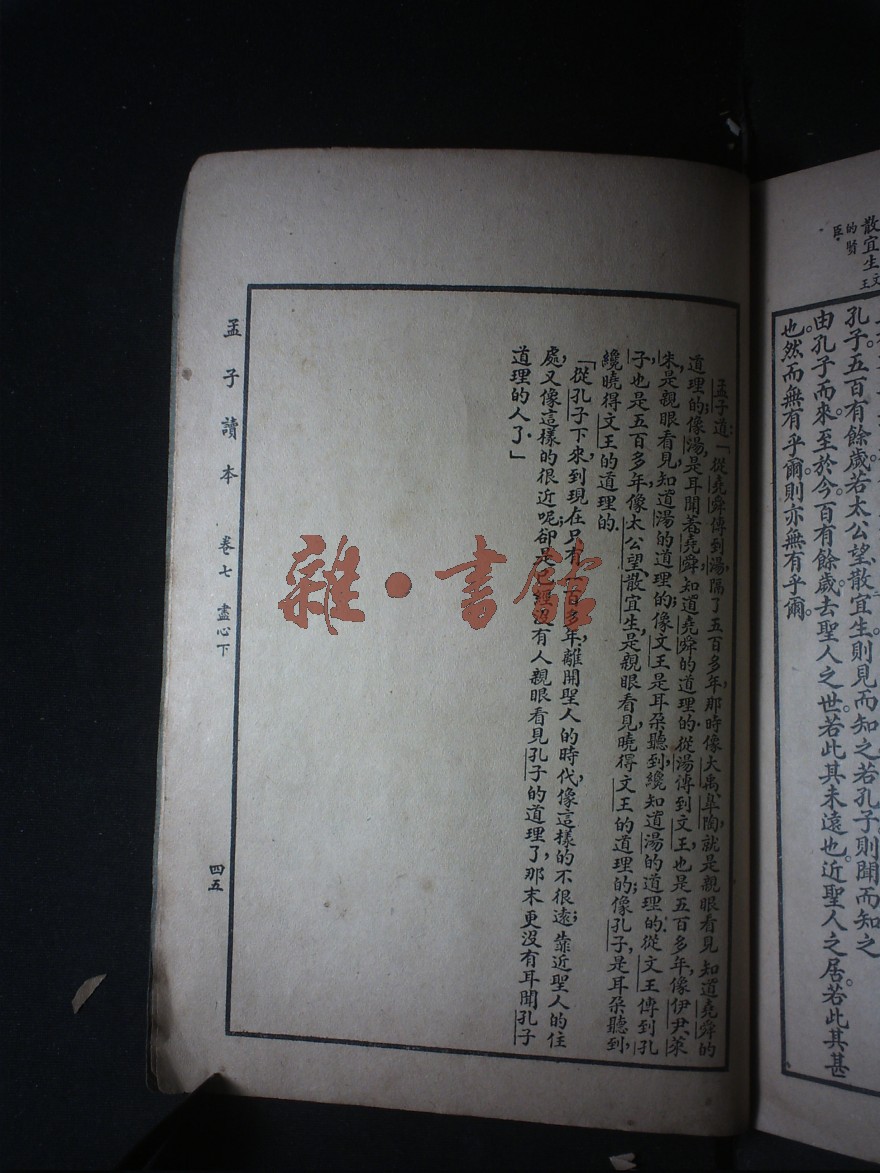 散宜生文王
的賢
臣。
孔子。五百有餘歲。若太公望、散宜生、則見而知之。若孔子則聞而知之。
由孔子而來。至於今。百有餘歲。去聖人之世。若此其未遠也。近聖人之居。若此其甚
也。然而無有乎爾。則亦無有乎爾。
孟子道：「從堯舜傳到湯，隔了五百多年，那時像大禹、皐陶，就是親眼看見知道堯舜的
道理的；像湯，是耳聞着堯舜，知道堯舜的道理的。從湯傳到文王，也是五百多年，像伊尹、萊
朱，是親眼看見，知道湯的道理的；像文王是耳朶聽到，纔知道湯的道理的。從文王傳到孔
子，也是五百多年，像太公望、散宜生，是親眼看見，曉得文王的道理的；像孔子，是耳朶聽到，
纔曉得文王的道理的。
「從孔子下來，到現在，只有一百多年，離開聖人的時代，像這樣的不很遠；靠近聖人的住
處，又像這樣的很近呢，卻是已經沒有人親眼看見孔子的道理了，那末更沒有耳聞孔子
道理的人了。」
孟子讀本 卷七 盡心下 四五
雜·書館